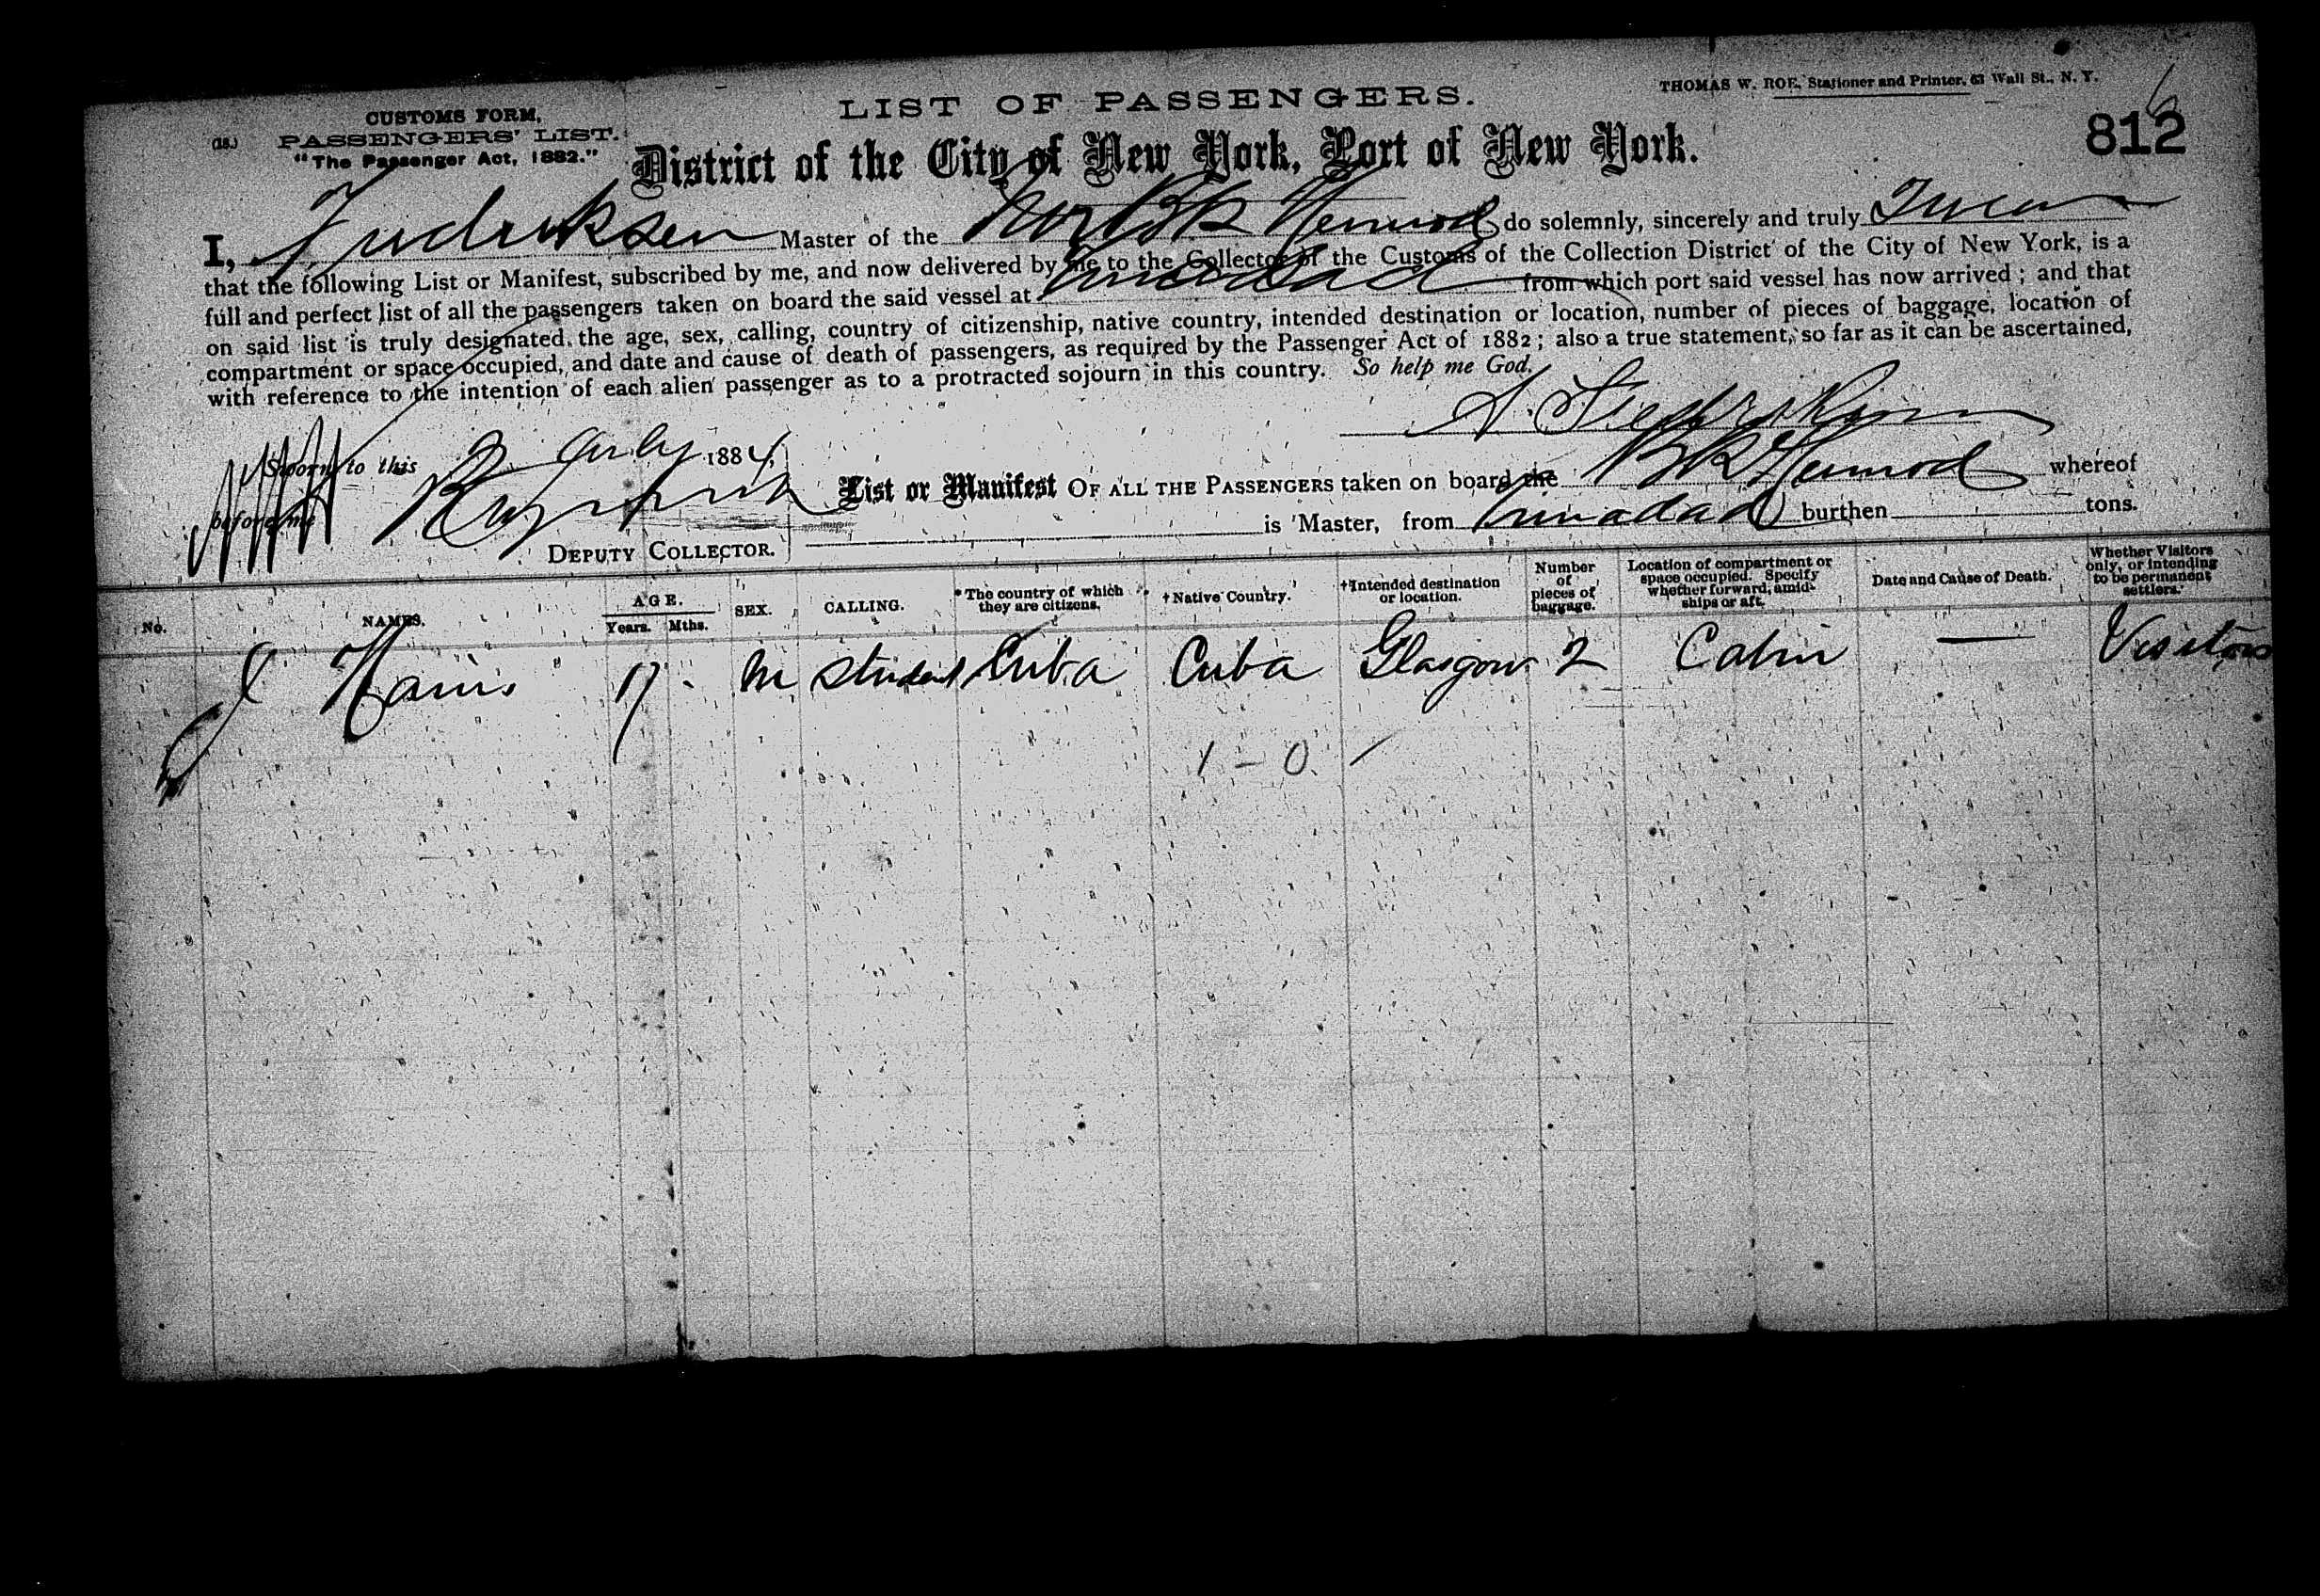 THOMAS W. ROE, Stationer and Printer, 63 Wall St., N. Y.
CUSTOMS FORM,
LIST OF PASSENGERS.
(18.) PASSENGERS' LIST.
"The Passenger Act, 1882."
District of the City of New York, Port of New York.
812
I, Fredriksen Master of the Nor Bk do solemnly, sincerely and truly Swear
that the following List or Manifest, subscribed by me, and now delivered by me to the Collector of the Customs of the Collection District of the City of New York, is a
full and perfect list of all the passengers taken on board the said vessel at Trinadad from which port said vessel has now arrived; and that
on said list is truly designated the age, sex, calling, country of citizenship, native country, intended destination or location, number of pieces of baggage, location of
compartment or space occupied, and date and cause of death of passengers, as required by the Passenger Act of 1882; also a true statement, so far as it can be ascertained,
with reference to the intention of each alien passenger as to a protracted sojourn in this country. So help me God.
Sworn to this July 1884,
before me
DEPUTY COLLECTOR.
List or Manifest OF ALL THE PASSENGERS taken on board the Bk whereof
is Master, from Trinadad burthen tons.
No. NAMES. AGE. Years. Mths. SEX. CALLING. * The country of which they are citizens. † Native Country. † Intended destination or location. Number of pieces of baggage. Location of compartment or space occupied. Specify whether forward, amidships or aft. Date and Cause of Death. Whether Visitors only, or intending to be permanent settlers.
J Harris 17 M Student Cuba Cuba Glasgow 2 Cabin — Visitors
1 – 0